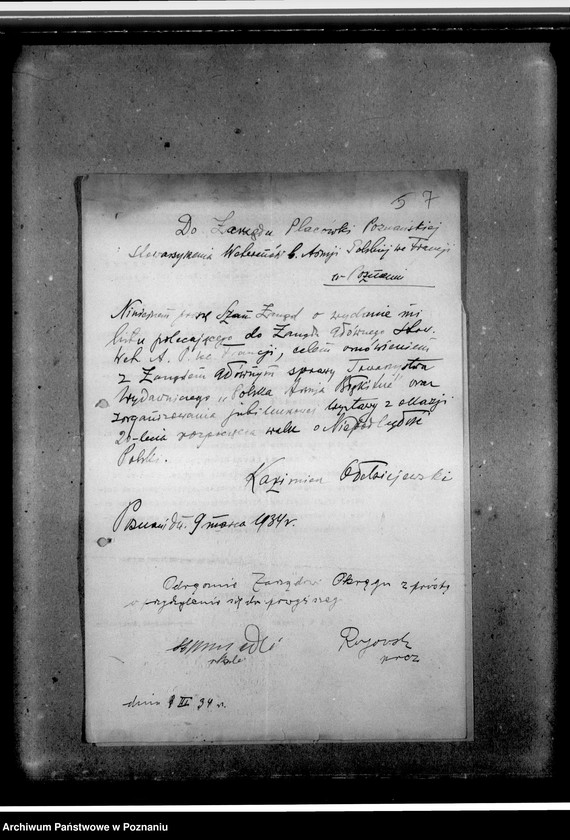 5 7
Do Zarządu Placówki Poznańskiej
i Stowarzyszenia Weteranów b. Armji Polskiej we Francji
w Poznaniu
Niniejszem proszę Szan. Zarząd o wydanie mi
listu polecającego do Zarządu Głównego Stow.
Wet. A. P. we Francji, celem omówienia
z Zarządem Głównym sprawy Towarzystwa
Wydawniczego "Polska Armja Błękitna" oraz
zorganizowania jubileuszowej wystawy z okazji
20-lecia rozpoczęcia walk o Niepodległość
Polski.
Kazimierz
Poznań dn. 9 marca 1934 r.
Zarządowi Okręgu z prośbą
o przychylenie się do powyższego
prez
dnia 9 III 34 r.
Archiwum Państwowe w Poznaniu